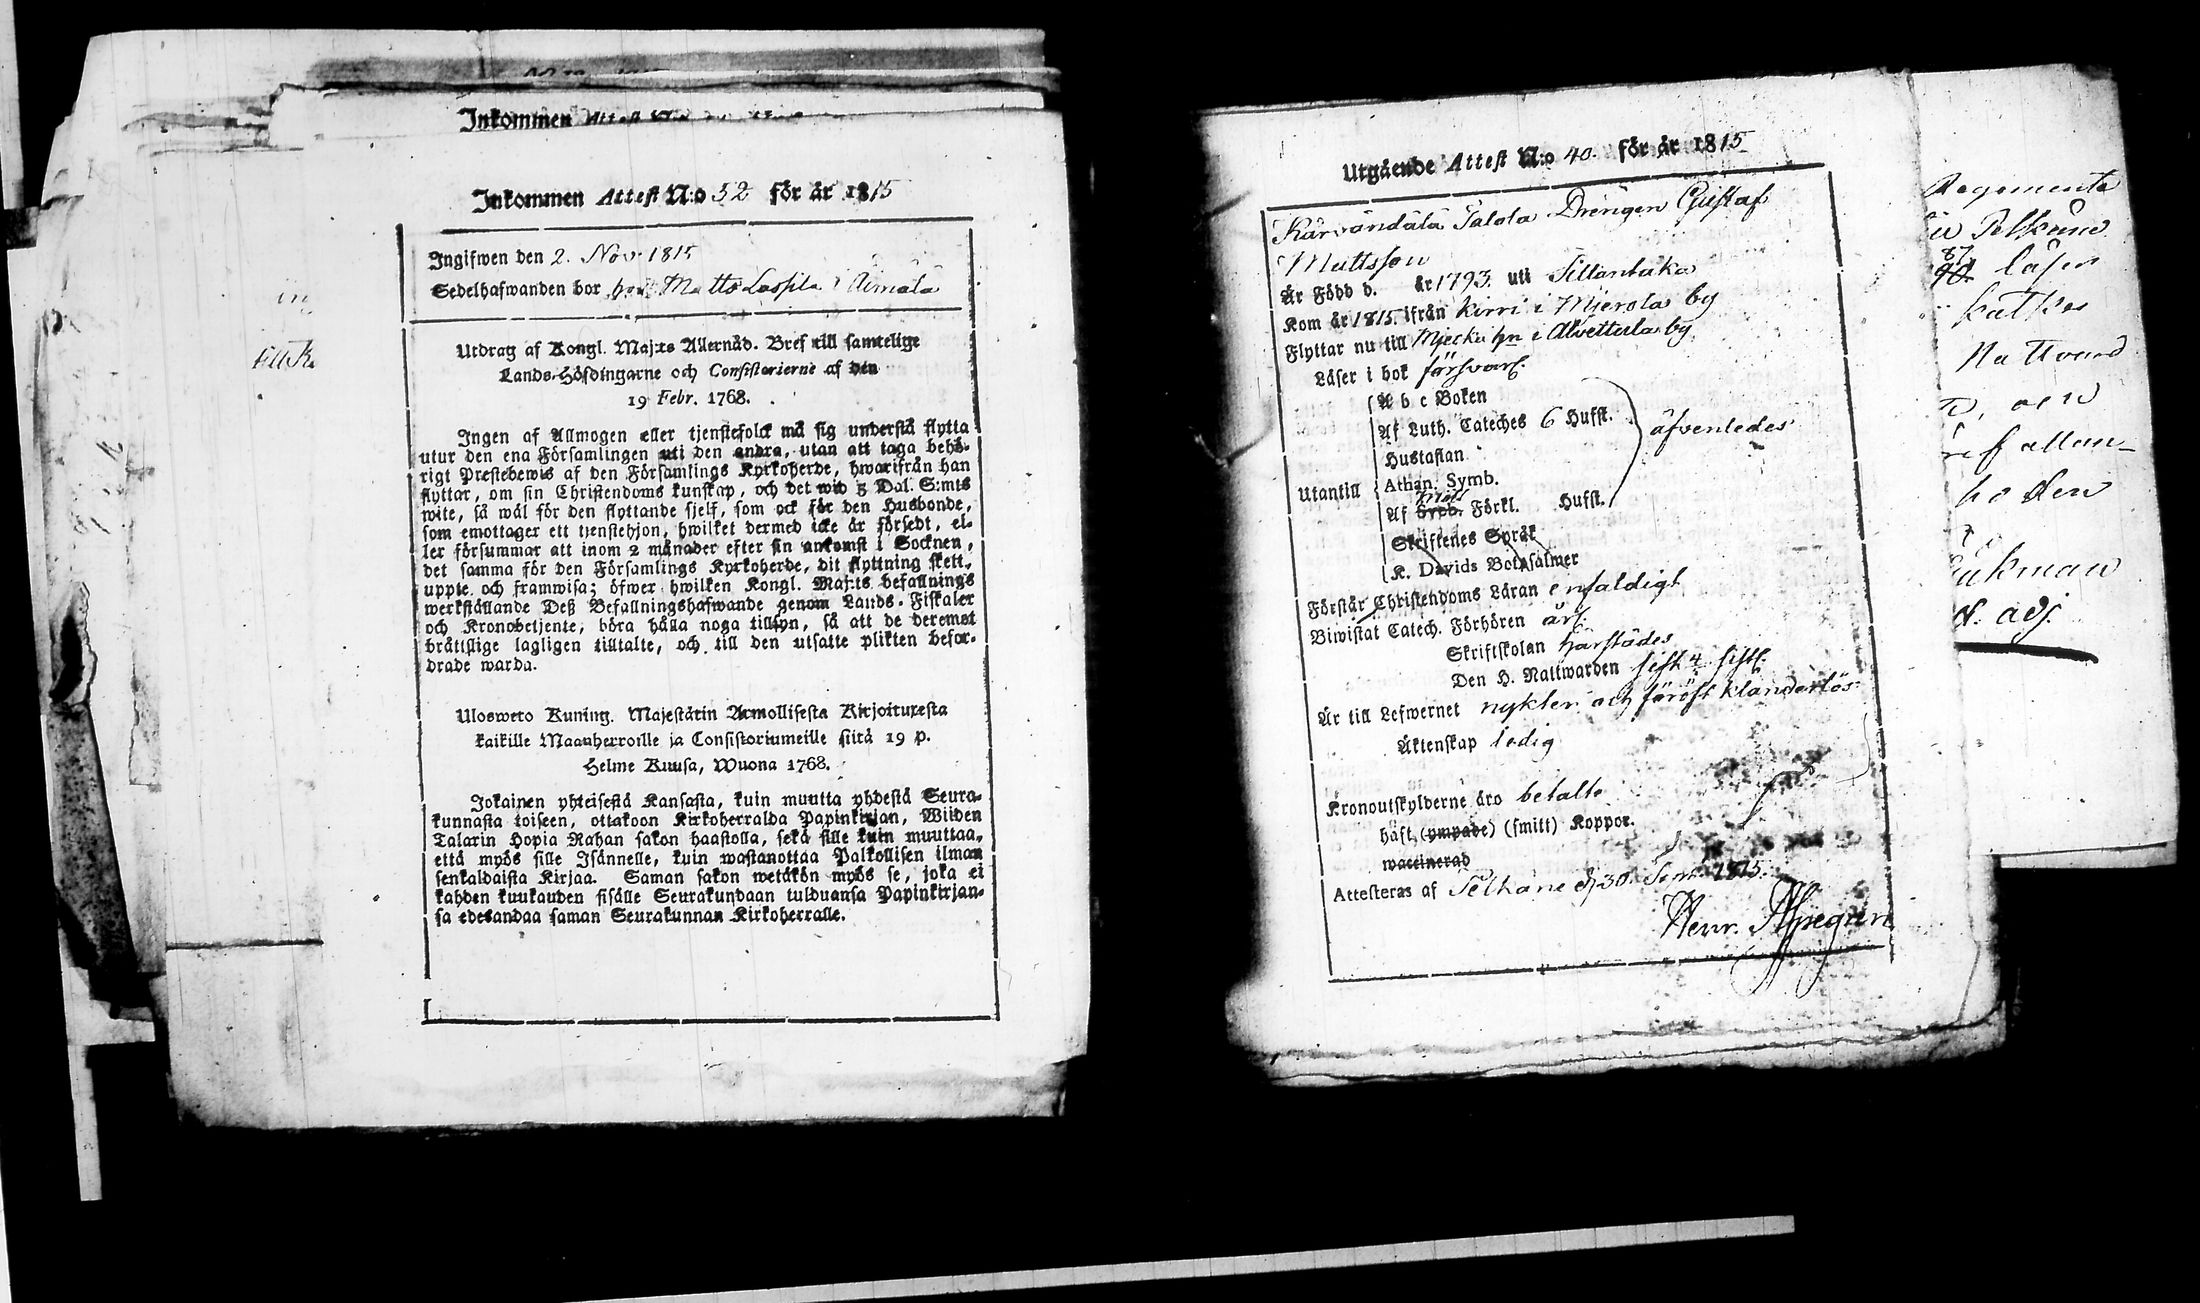 Inkommen Attest N:o
Inkommen Attest N:o 52 för år 1815
Ingifwen den 2. Nov. 1815
Sedelhafwanden bor hos Matts Laspila i Äimälä
Utdrag af Kongl. Maj:ts Allernåd. Bref till samtelige
Lands-Höfdingarne och Consistorierne af den
19 Febr. 1768.
Ingen af Allmogen eller tjenstefolck må sig understå flytta
utur den ena Församlingen uti den andra, utan att taga behö-
rigt Prestebewis af den Församlings Kyrkoherde, hwarifrån han
flyttar, om sin Christendoms kunskap, och det wid 5 Dal. S:mts
wite, så wäl för den flyttande sjelf, som ock för den Husbonde,
som emottager ett tjenstehjon, hwilket dermed icke är försedt, el-
ler försummar att inom 2 månader efter sin ankomst i Socknen,
det samma för den Församlings Kyrkoherde, dit flyttning skett,
uppte och framwisa; öfwer hwilken Kongl. Maj:ts befallnings
werkställande Deß Befallningshafwande genom Lands-Fiskaler
och Kronobetjente, böra hålla noga tillsyn, så att de deremot
bråttslige lagligen tilltalte, och till den utsatte plikten befor-
drade warda.
Ulosweto Kuning. Majestätin Armollisesta Kirjoituxesta
kaikille Maanherroille ja Consistoriumeille siitä 19 p.
Helme Kuusa, Wuona 1768.
Jokainen yhteisestä Kansasta, kuin muutta yhdestä Seura-
kunnasta toiseen, ottakoon Kirkoherralda Papinkirjan, Wiiden
Talarin Hopia Rahan sakon haastolla, sekä sille kuin muuttaa,
että myös sille Isännelle, kuin wastanottaa Palkollisen ilman
senkaldaista Kirjaa. Saman sakon wetäkön myös se, joka ei
kahden kuukauden sisälle Seurakundaan tulduansa Papinkirjan-
sa edesandaa saman Seurakunnan Kirkoherralle.
Utgående Attest N:o 40. för år 1815
Kärvändälä Talola Drengen Gustaf
Mattsson
Är Född d. år 1793. uti Sillantaka
Kom år 1815. ifrån Kirri i Mjerola by
Flyttar nu till Mjecku hn i Alvettula by
Läser i bok försvarl.
Utantill
A b c Boken
Af Luth. Cateches 6 Hufst.
Hustaflan
Athan. Symb.
Af Förkl. Hufst.
Skriftenes Språk
K. Davids Botpsalmer
äfvenledes
Förstår Christendoms Läran enfaldigt
Biwistat Catech. Förhören ärl.
Skriftskolan härstädes
Den H. Nattwarden sist
Är till Lefwernet nykter och föröfr. klanderlös
Äktenskap ledig
Kronoutskylderne äro betalte
häft (ympade) (smitt) Koppor.
waccinerad
Attesteras af Pelkäne d. 30. Sept. 1815.
Henr.
Regemente
Pelkäne
87
läser
Nattvard